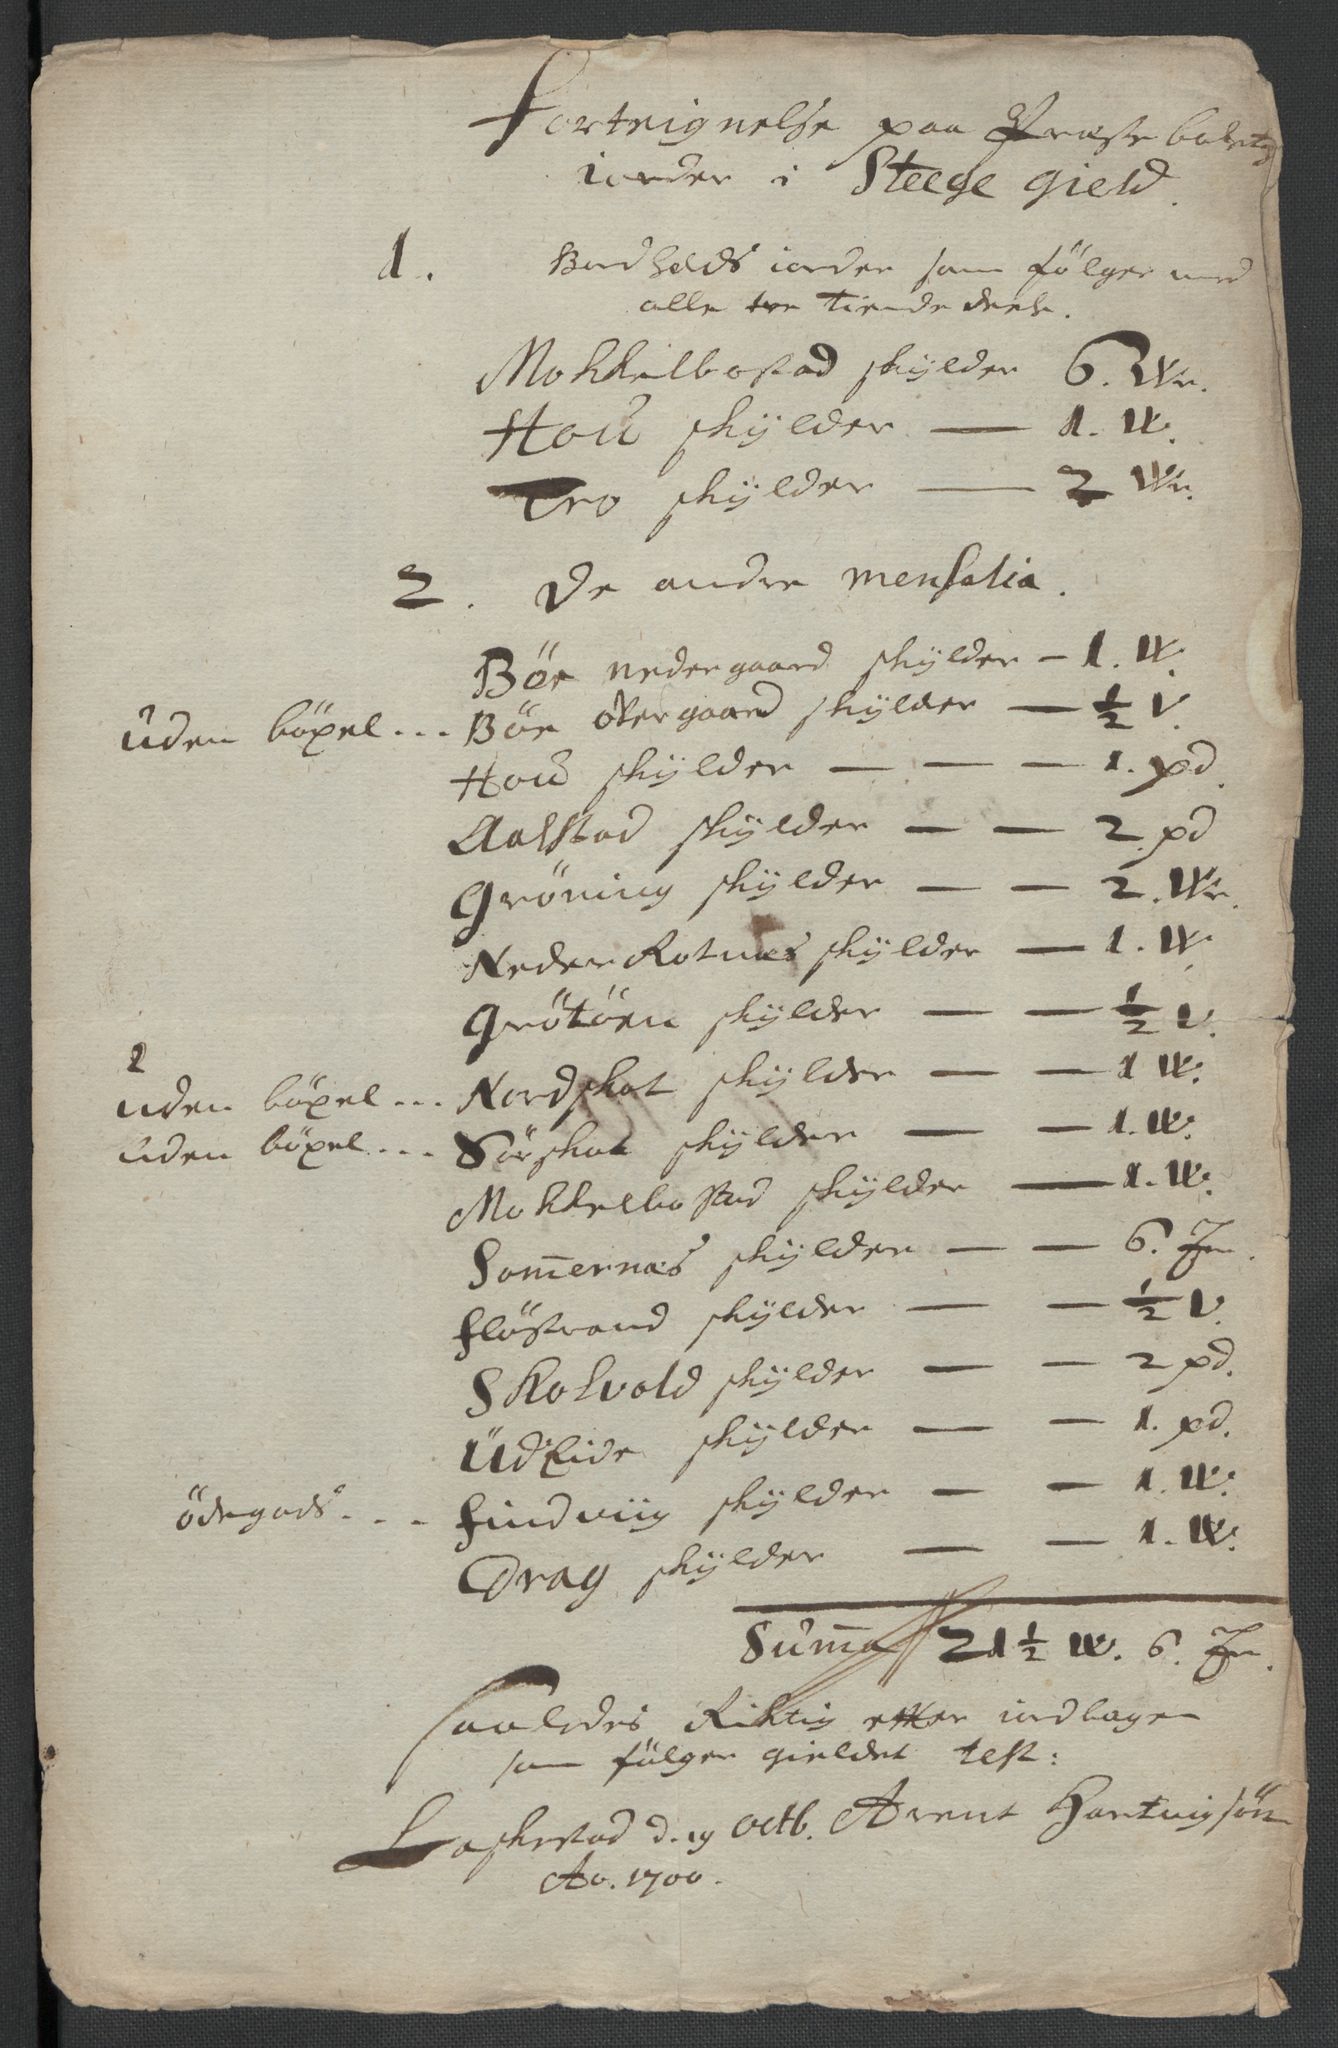 Forteignelse paa Præste bolets
iorder i Steege gield.
1. Bordholds iorder som følger med
alle tre tiende deele.
Mokkelbostad skylder 6. Wr.
Hoŭ skÿlder — 1. W.
Tro skÿlder — 2 Wr.
2. De andre mensalia.
Böe nedergaard skÿlder — 1. W.
ŭden böxel... Böe ofvergaard skÿlder — ½ V.
Hoŭ skÿlder — — — 1. pd.
Aalstad skÿlder — — 2 pd
Gröning skÿlder — — 2. Wr.
Neder Rotnæs skÿlder — 1. W.
Grötöen skÿlder — — ½ V.
ŭden böxel... Nordskot skÿlder — — 1 W.
ŭden böxel... Sörskot skÿlder — — 1. W.
Mokkelbostad skÿlder — 1. W.
Som̅ernæs skÿlder — — 6.
flöstrand skÿlder — — ½ V.
Skolvold skÿlder — — 2 pd.
Ŭdeide skÿlder — — 1. pd.
ödegods... findviig skÿlder — — 1. W.
Drag skÿlder — — 1. W.
Sŭm̅a 21 ½ W. 6.
saaledes Riktig efter iordbogen
som fölger gieldet test:
Laskestad d. 19 octb. Arent Hartvigsön
Ao. 1700.